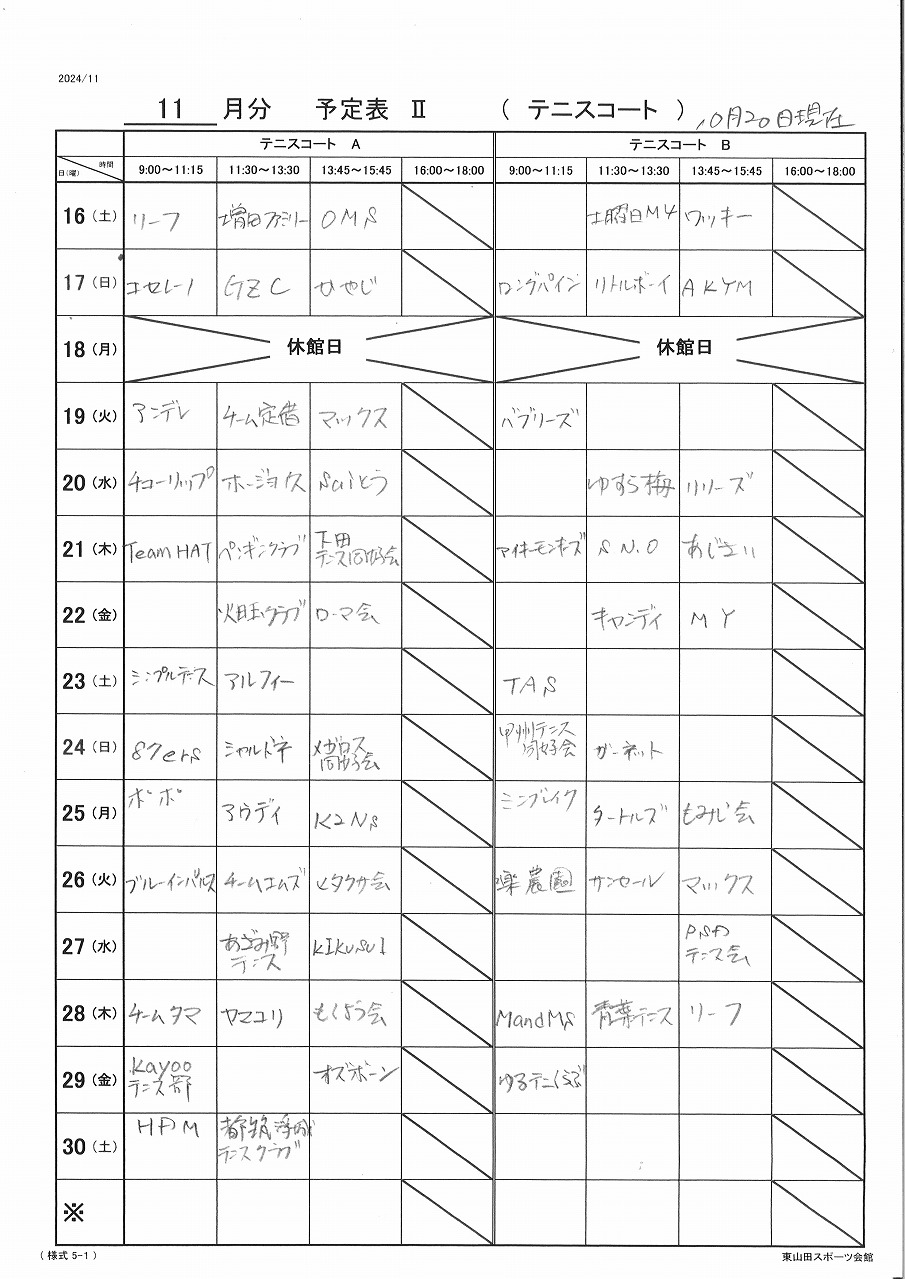 2024/11
11 月分 予定表 Ⅱ ( テニスコート ) 10月20日現在
テニスコート A テニスコート B
時間
日(曜) 9:00～11:15 11:30～13:30 13:45～15:45 16:00～18:00 9:00～11:15 11:30～13:30 13:45～15:45 16:00～18:00
16(土) リーフ 増田ファミリー OMS 土曜日M4 ワッキー
17(日) コセレーノ GZC ひやじ ロングパイン リトルボーイ AKYM
18(月) 休館日 休館日
19(火) アンデレ チーム定借 マックス バブリーズ
20(水) チューリップ ホージョイス Saiとう ゆすら梅 リリーズ
21(木) TeamHAT ペンギンクラブ 下田 S N.O あじさい
テニス同好会
22(金) 火曜クラブ ローマ会 キャンディ MY
23(土) シンプルテニス アルフィー TAS
24(日) 87ers シャルドネ メガロス 甲州テニス ガーネット
同好会 同好会
25(月) ポポ アウディ K2NS ミニブレイク タートルズ もみじ会
26(火) ブルーインパルス チームエムズ ヒタクサ会 楽農園 サンセール マックス
27(水) あざみ野 KIKUSUI
テニス テニス会
28(木) チームタマ ヤマユリ もくよう会 MandMS 青葉テニス リーフ
29(金) Kayoo オズボーン
テニス部
30(土) テニスクラブ
※
(様式 5-1) 東山田スポーツ会館